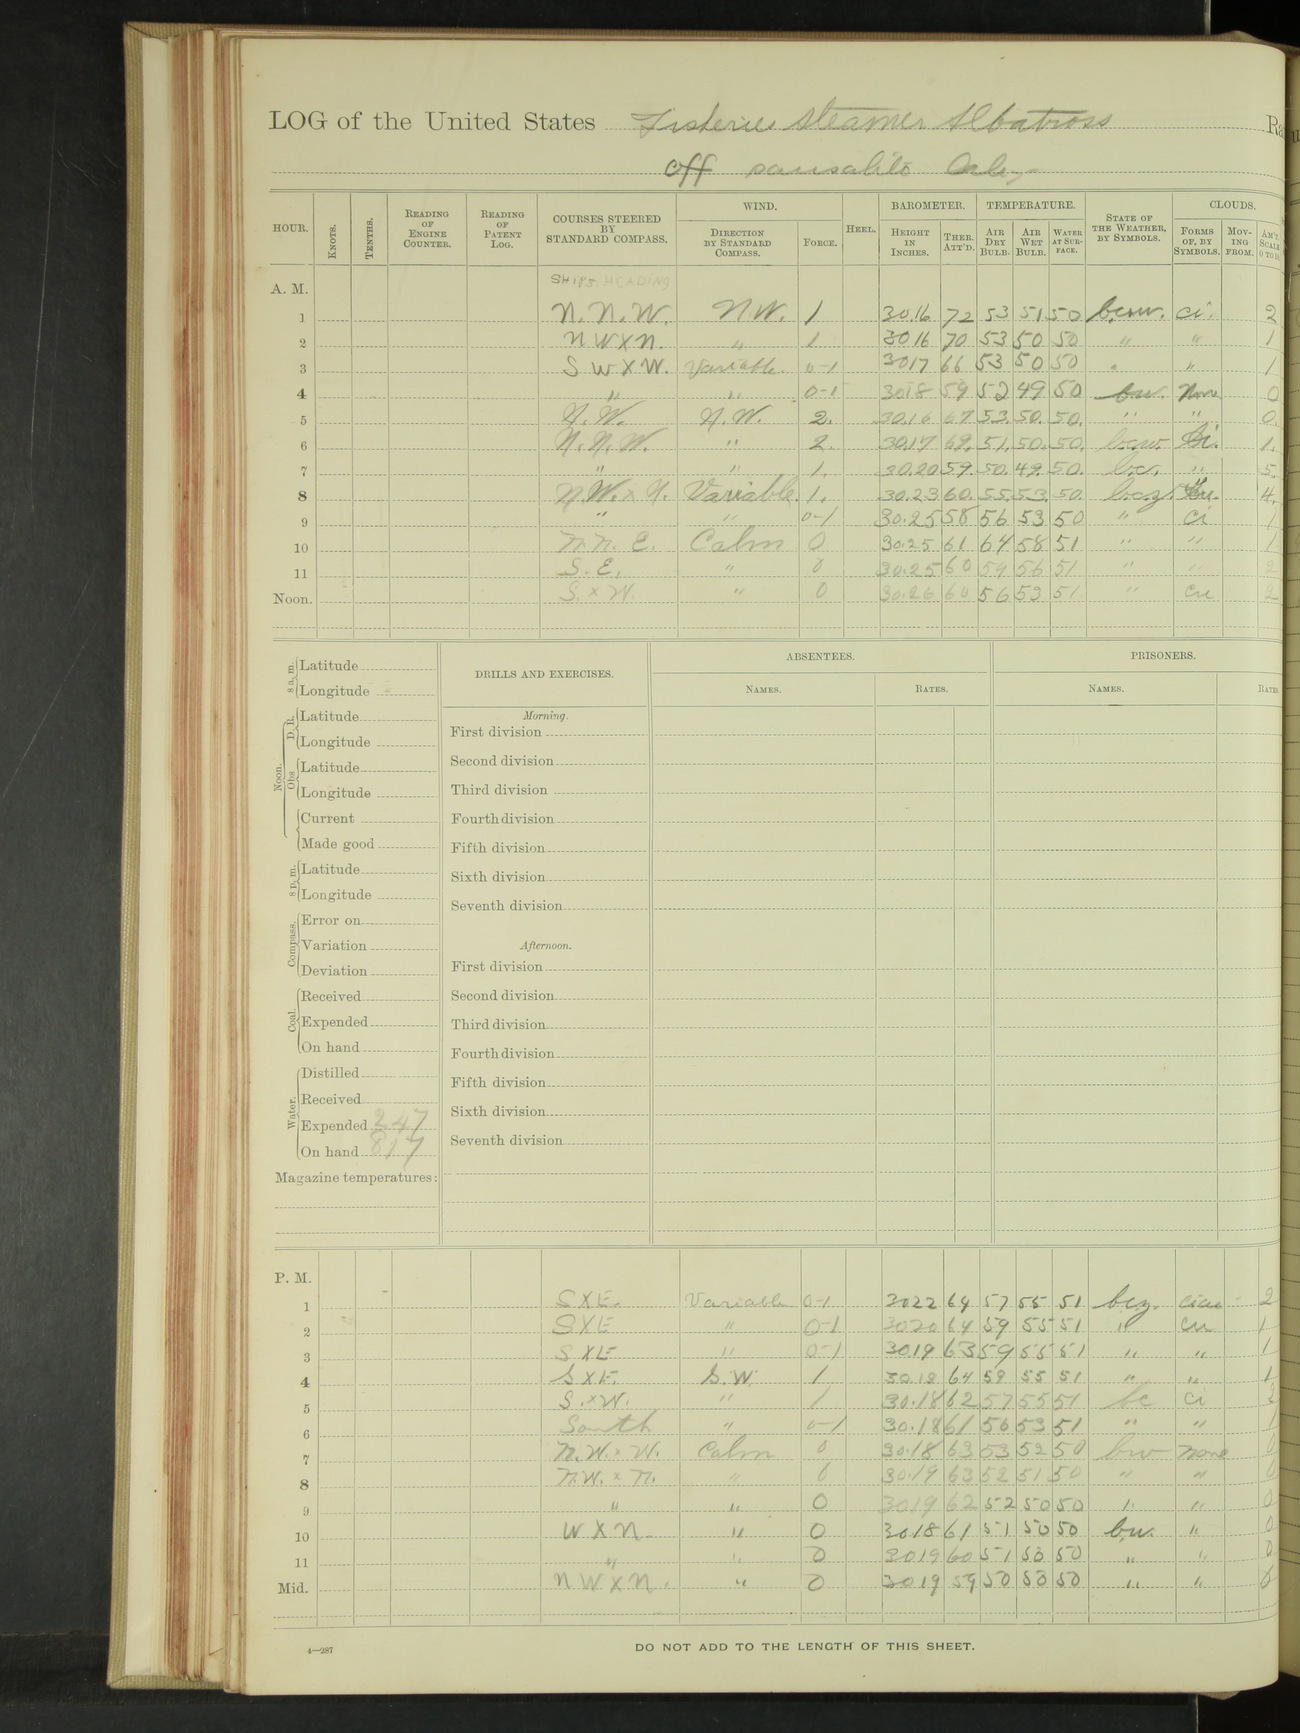 LOG of the United States Fisheries Steamer Albatross Ra
off Sausalito Cal,
HOUR. KNOTS. TENTHS. READING OF ENGINE COUNTER. READING OF PATENT LOG. COURSES STEERED BY STANDARD COMPASS. WIND. DIRECTION BY STANDARD COMPASS. FORCE. HEEL. BAROMETER. HEIGHT IN INCHES. THER. ATT'D. TEMPERATURE. AIR DRY BULB. AIR WET BULB. WATER AT SURFACE. STATE OF THE WEATHER, BY SYMBOLS. CLOUDS. FORMS OF, BY SYMBOLS. MOVING FROM. AM'T. SCALE 0 TO 10
A. M. SHIPS HEADING
1 N.N.W. N.W. 1 30.16 72 53 51 50 bcw. ci. 2
2 N W X N. " 1 30 16 70 53 50 50 " " 1
3 S W X W. Variable 0-1 30 17 66 53 50 50 " " 1
4 " " 0-1 30.18 59 52 49 50 bw. None 0
5 N.W. N.W. 2. 30.16 67 53. 50. 50. " " 0.
6 N.N.W. " 2. 30.17 62. 51. 50. 50. bcw. Ci. 1.
7 " " 1. 30.20 59. 50. 49. 50. bc. " 5.
8 N.W. x N. Variable 1. 30.23 60. 55. 53. 50. bcz. Cu. 4.
9 " " 0-1 30.25 58 56 53 50 " Ci 1
10 N.N.E. Calm 0 30.25 61 64 58 51 " " 1
11 S.E. " 0 30.25 60 59 56 51 " " 2
Noon. S. x W. " 0 30.26 60 56 53 51 " cu 2
8 a. m. Latitude
Longitude
Noon. D. R. Latitude
Longitude
Obs Latitude
Longitude
Current
Made good
8 p. m. Latitude
Longitude
Compass. Error on
Variation
Deviation
Coal. Received
Expended
On hand
Water. Distilled
Received
Expended 247
On hand 817
Magazine temperatures:
DRILLS AND EXERCISES.
Morning.
First division
Second division
Third division
Fourth division
Fifth division
Sixth division
Seventh division
Afternoon.
First division
Second division
Third division
Fourth division
Fifth division
Sixth division
Seventh division
ABSENTEES.
NAMES. RATES.
PRISONERS.
NAMES. RATES
P. M.
1 S X E. Variable 0-1 30 22 64 57 55 51 bcz. cicu 2
2 S X E " 0-1 30 20 64 59 55 51 " cu 1
3 S X E " 0-1 30 19 63 59 55 51 " " 1
4 S X E. S.W. 1 30.18 64 59 55 51 " " 1
5 S. x W. " 1 30.18 62 57 55 51 bc ci 2
6 South " 0-1 30.18 61 56 53 51 " " 1
7 N.W. x W. Calm 0 30.18 63 53 52 50 bw none 0
8 N.W. x N. " 0 30.19 63 52 51 50 " " 0
9 " " 0 30 19 62 52 50 50 " " 0
10 W X N " 0 30 18 61 51 50 50 bw. " 0
11 " " 0 30 19 60 51 50 50 " " 0
Mid. N W X N. " 0 30 19 59 50 50 50 " " 0
4—287
DO NOT ADD TO THE LENGTH OF THIS SHEET.